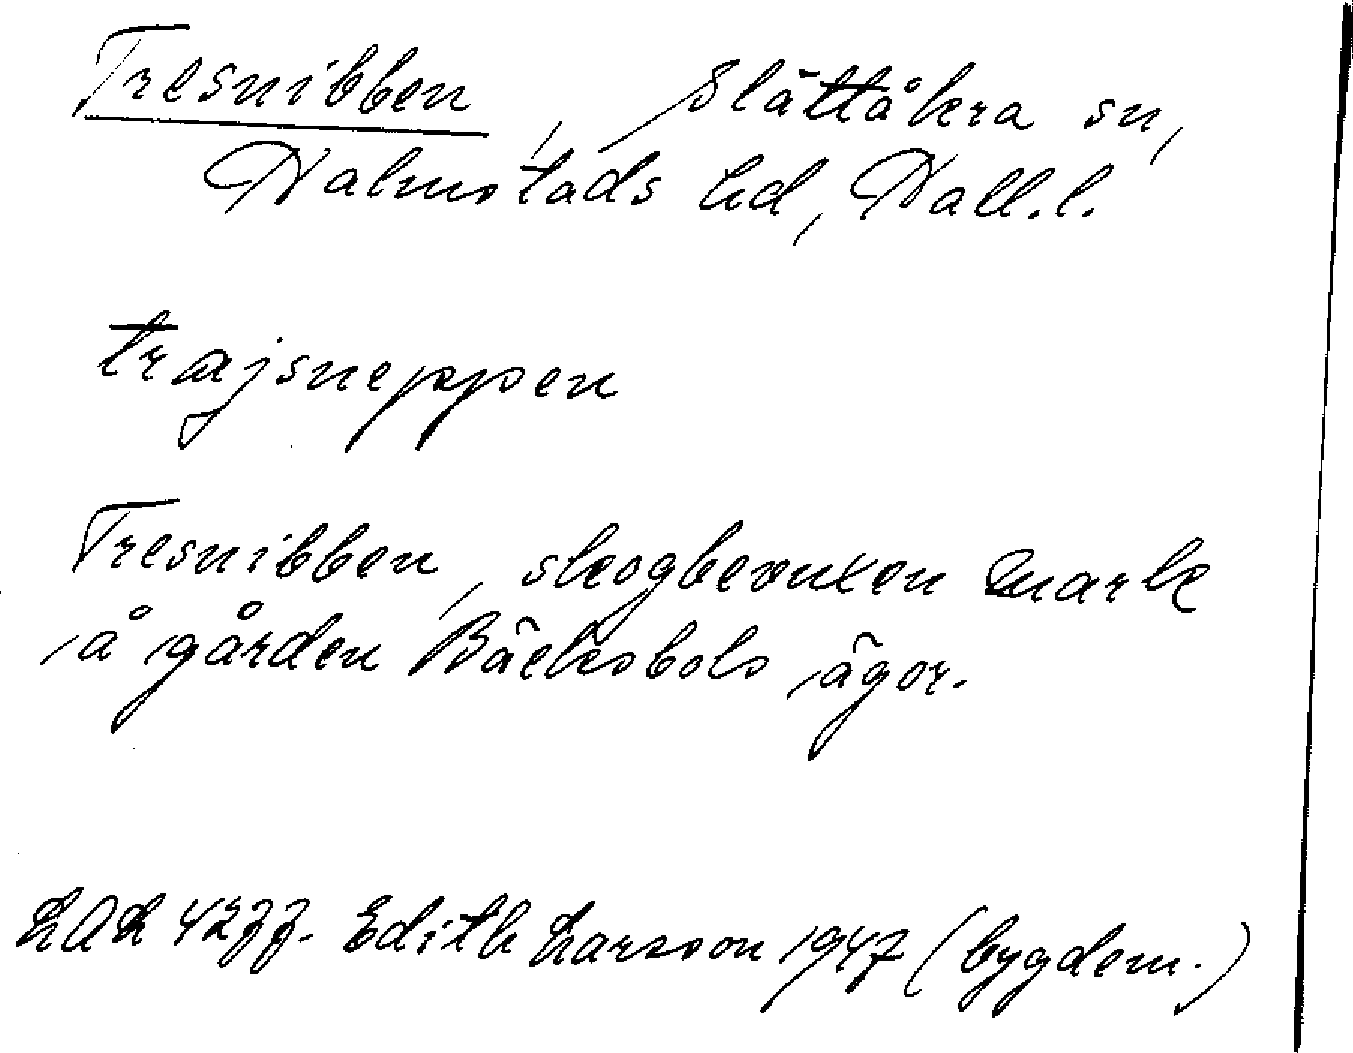 Tresnibben, Slättåkra sn,
Halmstads hd, Hall.l.
trajsneppen
Tresnibben, skogbevuxen mark
å gården Bäcksbols ägor.
LAL 4277. Edith Larsson 1947 (bygdem.)